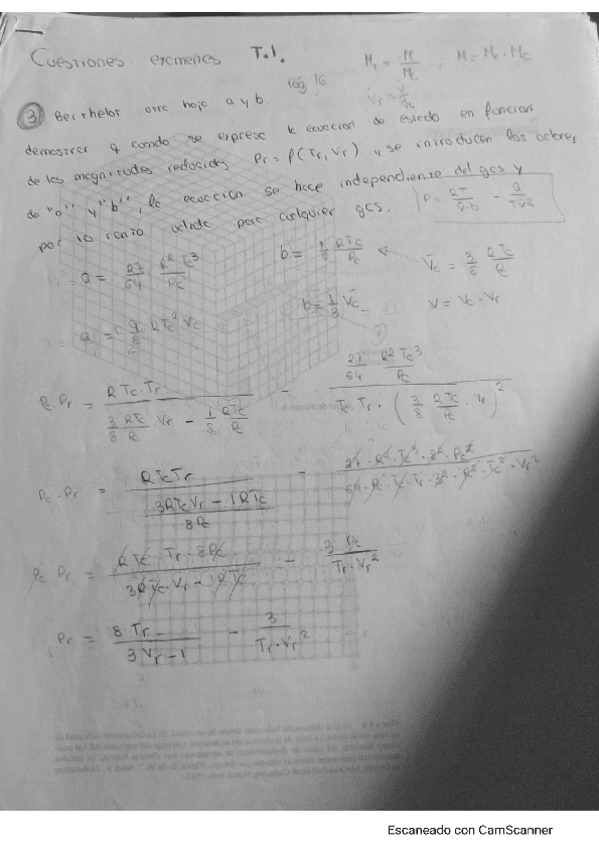 Cuestiones exámenes T.1. Mr = M/Mc M = Mr · Mc
pág 16 Vr = V/Vc
③ Berthelot otra hoja a y b.
demostrar q cuando se expresa la ecuación de estado en función
de las magnitudes reducidas Pr = f(Tr, Vr) y se introducen los valores
de "a" y "b", la ecuación se hace independiente del gas y
por lo tanto válida para cualquier gas. P = RT/(V̄-b) - a/(TV̄²)
a = 27/64 R²Tc³/Pc b = 1/8 RTc/Pc V̄c = 3/8 RTc/Pc
a = 9/8 RTc² Vc b = 1/3 V̄c V = Vc · Vr
Pc · Pr = RTc · Tr / (3/8 RTc/Pc · Vr - 1/8 RTc/Pc) - (27/64 R²Tc³/Pc) / (Tc · Tr · (3/8 RTc/Pc · Vr)²)
Pc · Pr = RTcTr / ((3RTcVr - 1RTc)/8Pc) - 27 · R² · Tc³ · 8² · Pc² / (64 · Pc · Tc · Tr · 3² · R² · Tc² · Vr²)
Pc Pr = RTc · Tr · 8Pc / (3RTc · Vr - 1RTc) - 3 Pc / (Tr · Vr²)
Pr = 8Tr / (3Vr - 1) - 3 / (Tr · Vr²)
Escaneado con CamScanner